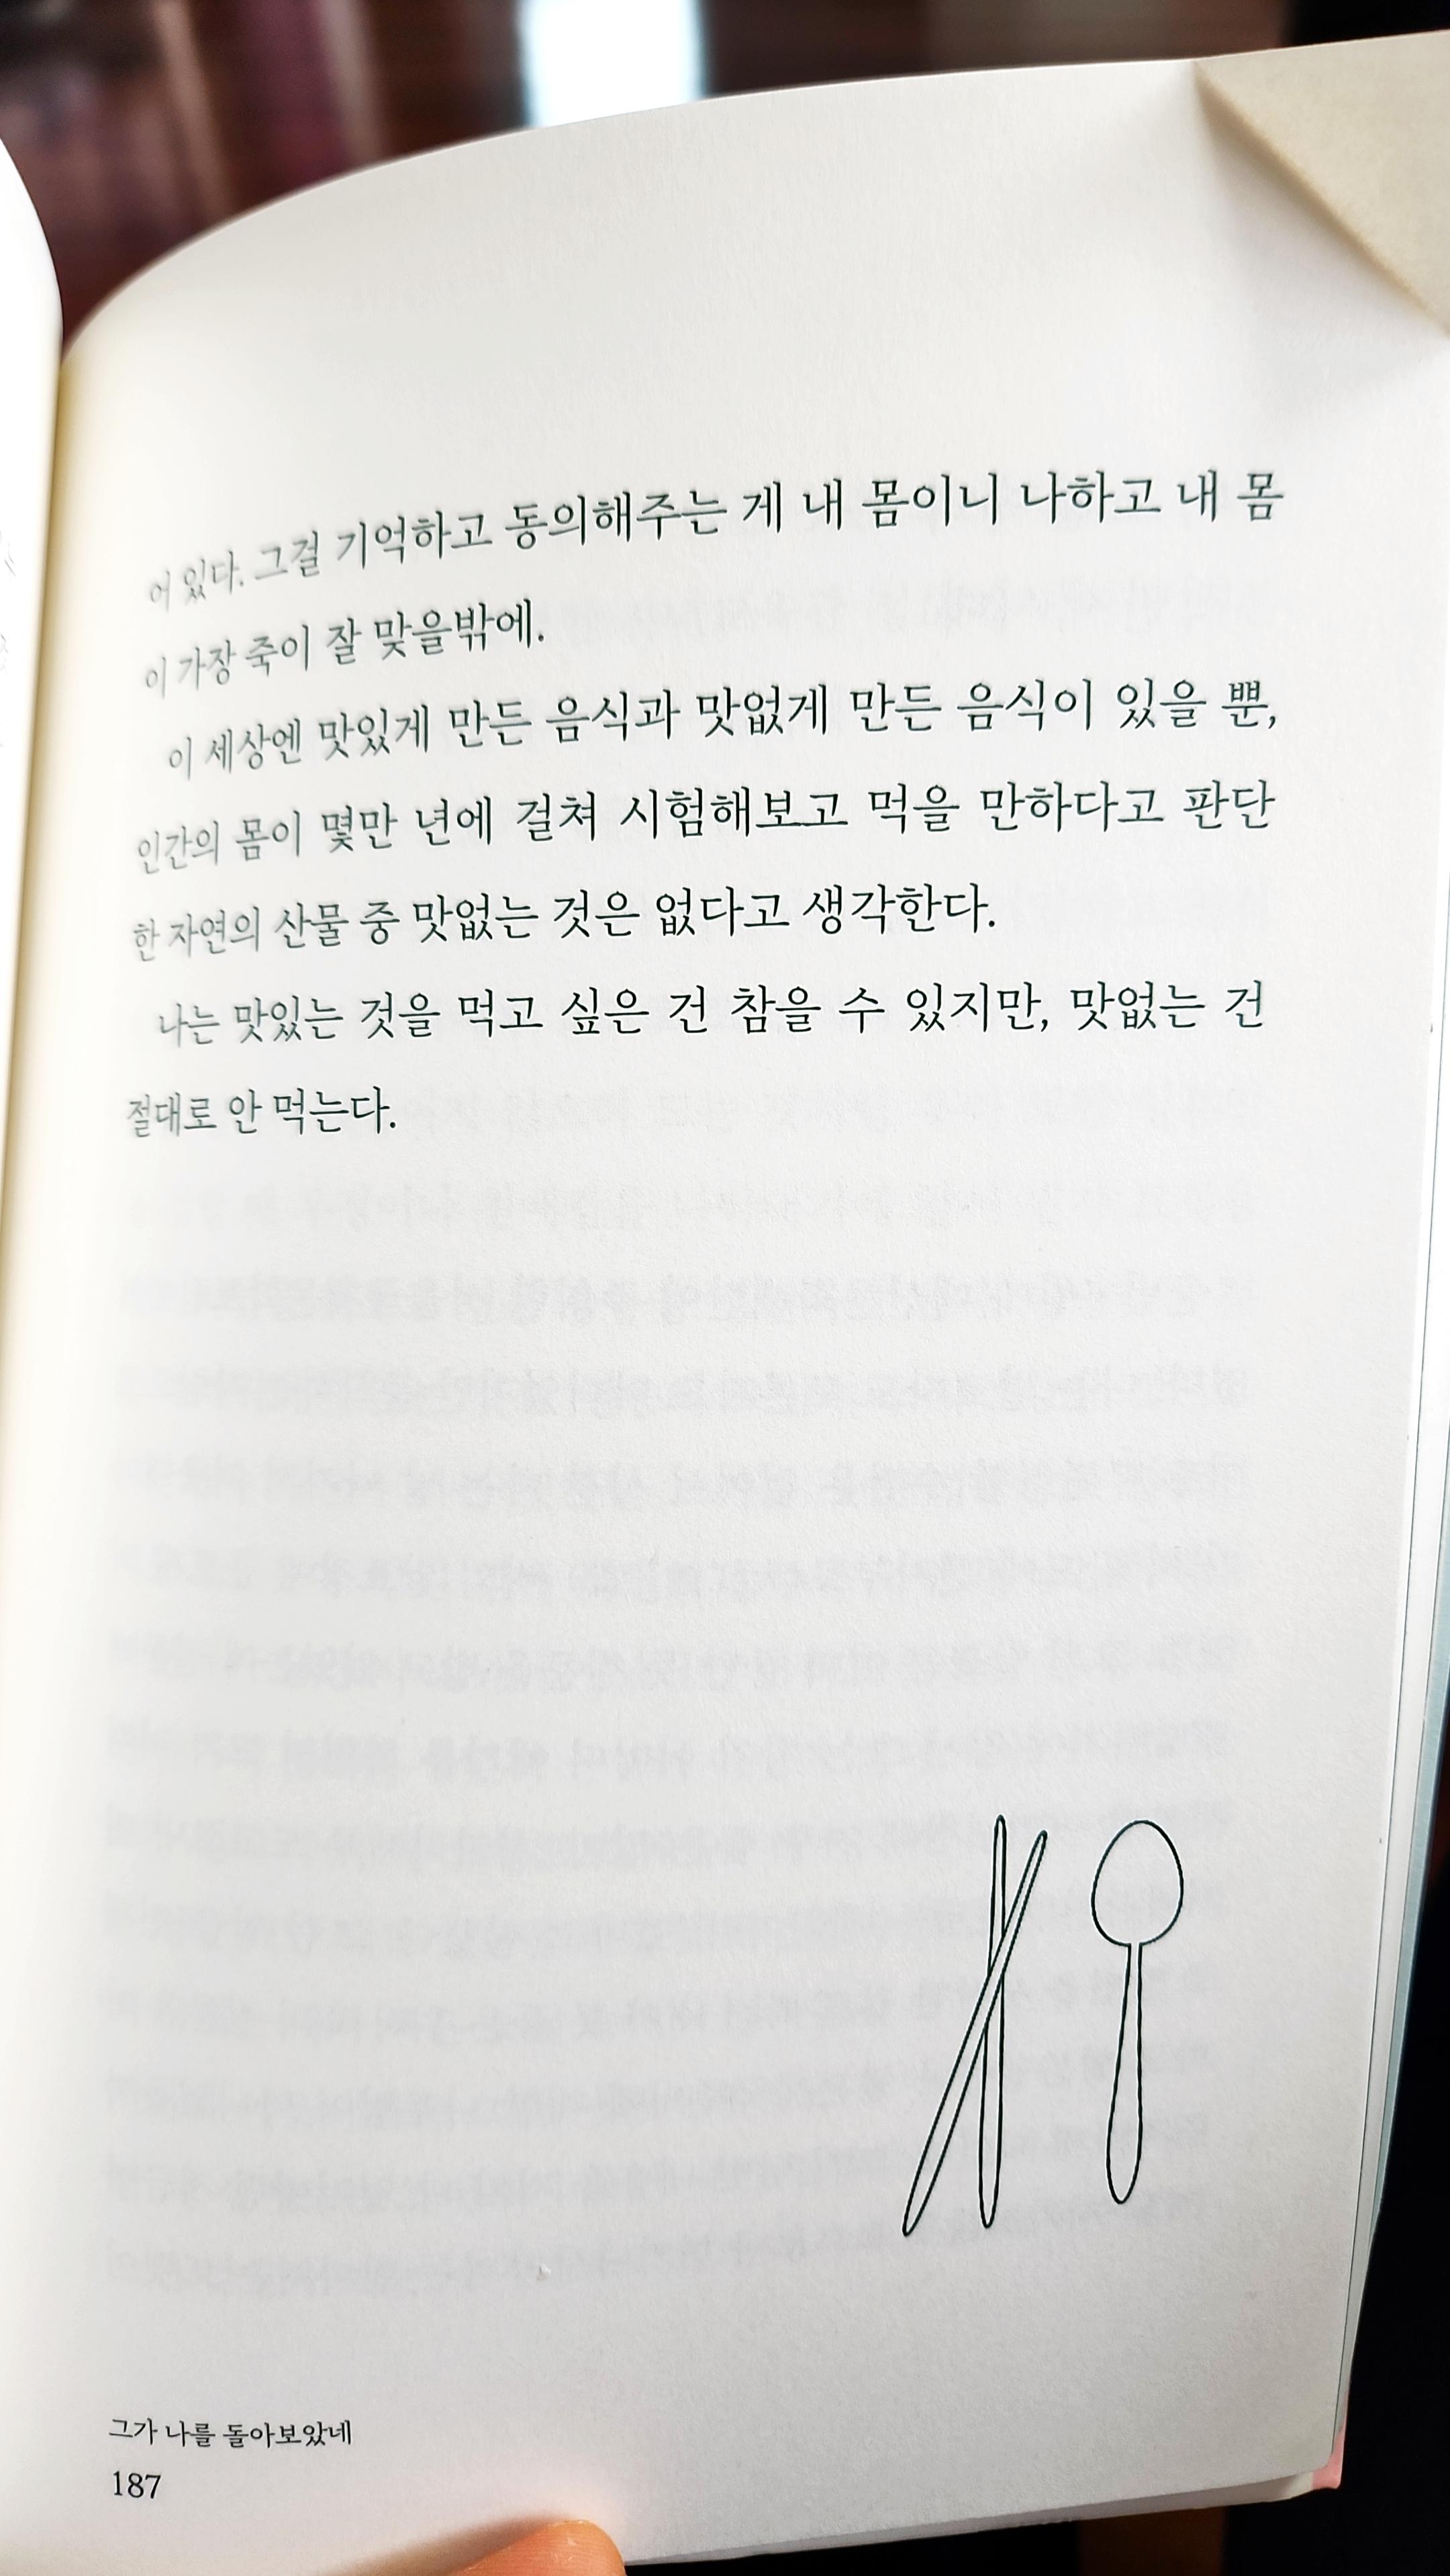 어 있다. 그걸 기억하고 동의해주는 게 내 몸이니 나하고 내 몸
이 가장 죽이 잘 맞을밖에.
이 세상엔 맛있게 만든 음식과 맛없게 만든 음식이 있을 뿐,
인간의 몸이 몇만 년에 걸쳐 시험해보고 먹을 만하다고 판단
한 자연의 산물 중 맛없는 것은 없다고 생각한다.
나는 맛있는 것을 먹고 싶은 건 참을 수 있지만, 맛없는 건
절대로 안 먹는다.
그가 나를 돌아보았네
187